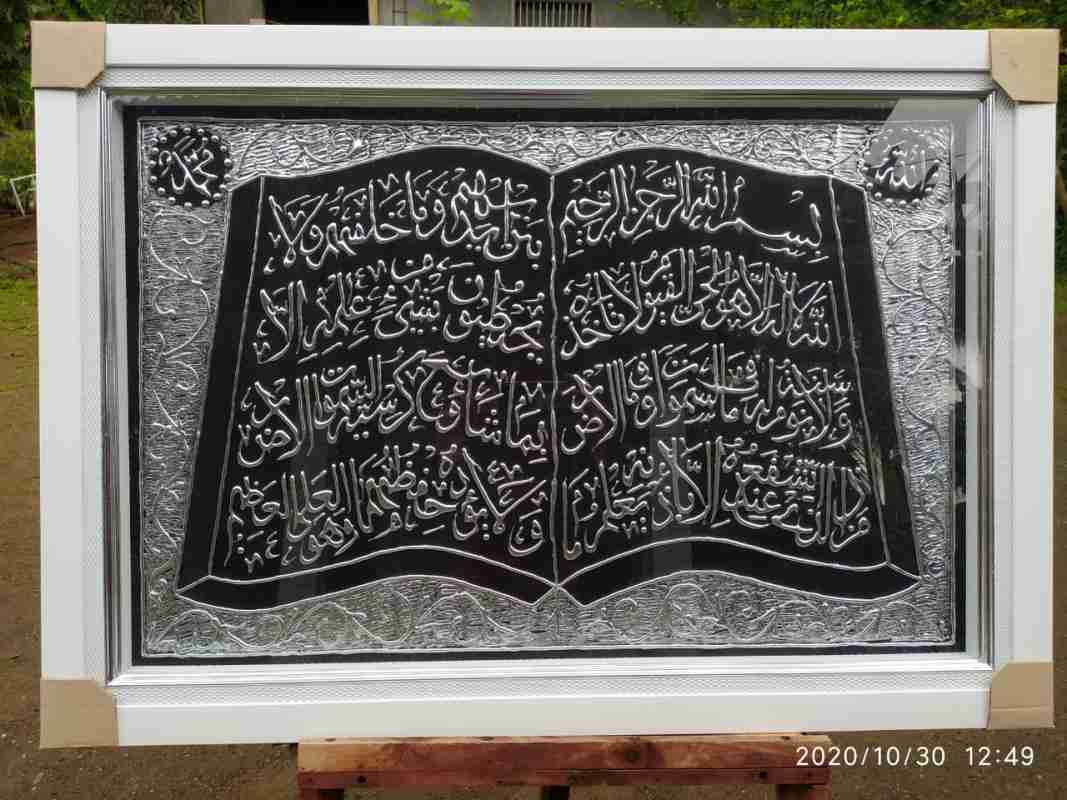 الله
محمد
بسم الله الرحمن الرحيم
الله لا اله الا هو الحي القيوم لا تاخذه
سنة ولا نوم له ما في السموات وما في الارض
من ذا الذي يشفع عنده الا باذنه يعلم ما
بين ايديهم وما خلفهم ولا
يحيطون بشيء من علمه الا
بما شاء وسع كرسيه السموات والارض
ولا يؤده حفظهما وهو العلي العظيم
2020/10/30 12:49